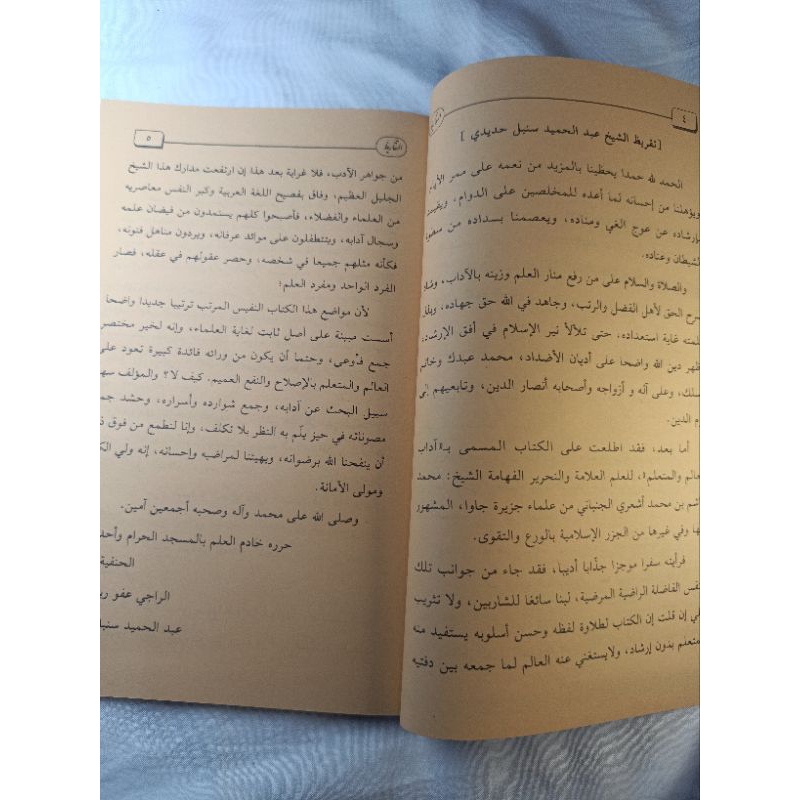 ٤
[ تقريظ الشيخ عبد الحميد سنبل حديدي ]
الحمد لله حمدا يحظينا بالمزيد من نعمه على ممر الأيام
ويؤهلنا من إحسانه لما أعده للمخلصين على الدوام، ويقيمنا
بإرشاده عن عوج الغي ومناده، ويعصمنا بسداده من
الشيطان وعناده.
والصلاة والسلام على من رفع منار العلم وزينه بالآداب،
سرح الحق لأهل الفضل والرتب، وجاهد في الله حق جهاده،
غاية استعداده، حتى تلألأ نير الإسلام في أفق الإرشاد،
ظهر دين الله واضحا على أديان الأضداد، محمد عبدك وخاتم
سلك، وعلى آله و أزواجه وأصحابه أنصار الدين، وتابعيهم إلى
م الدين.
أما بعد، فقد اطلعت على الكتاب المسمى بـ«آداب
عالم والمتعلم»، للعلم العلامة والتحرير الفهامة الشيخ: محمد
اشم بن محمد أشعري الجنباني من علماء جزيرة جاوا، المشهور
ها وفي غيرها من الجزر الإسلامية بالورع والتقوى.
فرأيته سفرا موجزا جذّابا أديبا، فقد جاء من جوانب تلك
نفس الفاضلة الراضية المرضية، لبنا سائغا للشاربين، ولا تثريب
ي إن قلت إن الكتاب لطلاوة لفظه وحسن أسلوبه يستفيد منه
متعلم بدون إرشاد، ولايستغني عنه العالم لما جمعه بين دفتيه
٥
من جواهر الأدب، فلا غرابة بعد هذا إن ارتفعت مدارك هذا الشيخ
الجليل العظيم، وفاق بفصيح اللغة العربية وكبر النفس معاصريه
من العلماء والفضلاء، فأصبحوا كلهم يستمدون من فيضان علمه
وسجال آدابه، ويتتطفلون على موائد عرفانه، ويردون مناهل فنونه،
فكأنه مثلهم جميعا في شخصه، وحصر عقولهم في عقله، فصار
الفرد الواحد ومفرد العلم؛
لأن مواضع هذا الكتاب النفيس المرتب ترتيبا جديدا واضحا
أسست مبينة على أصل ثابت لغاية العلماء، وإنه لخير مختصر
جمع فأوعي، وحتما أن يكون من ورائه فائدة كبيرة تعود على
العالم والمتعلم بالإصلاح والنفع العميم. كيف لا؟ والمؤلف
سبيل البحث عن آدابه، وجمع شوارده وأسراره، وحشد
مصوناته في حيز يلّم به النظر بلا تكلف، وإنا لنطمع من فوق
أن ينفحنا الله برضوانه، ويهيئنا لمراضيه وإحسانه، إنه ولي
ومولى الأمانة.
وصلى الله على محمد وآله وصحبه أجمعين آمين.
حرره خادم العلم بالمسجد الحرام وأحد
الحنفية
الراجي عفو
عبد الحميد